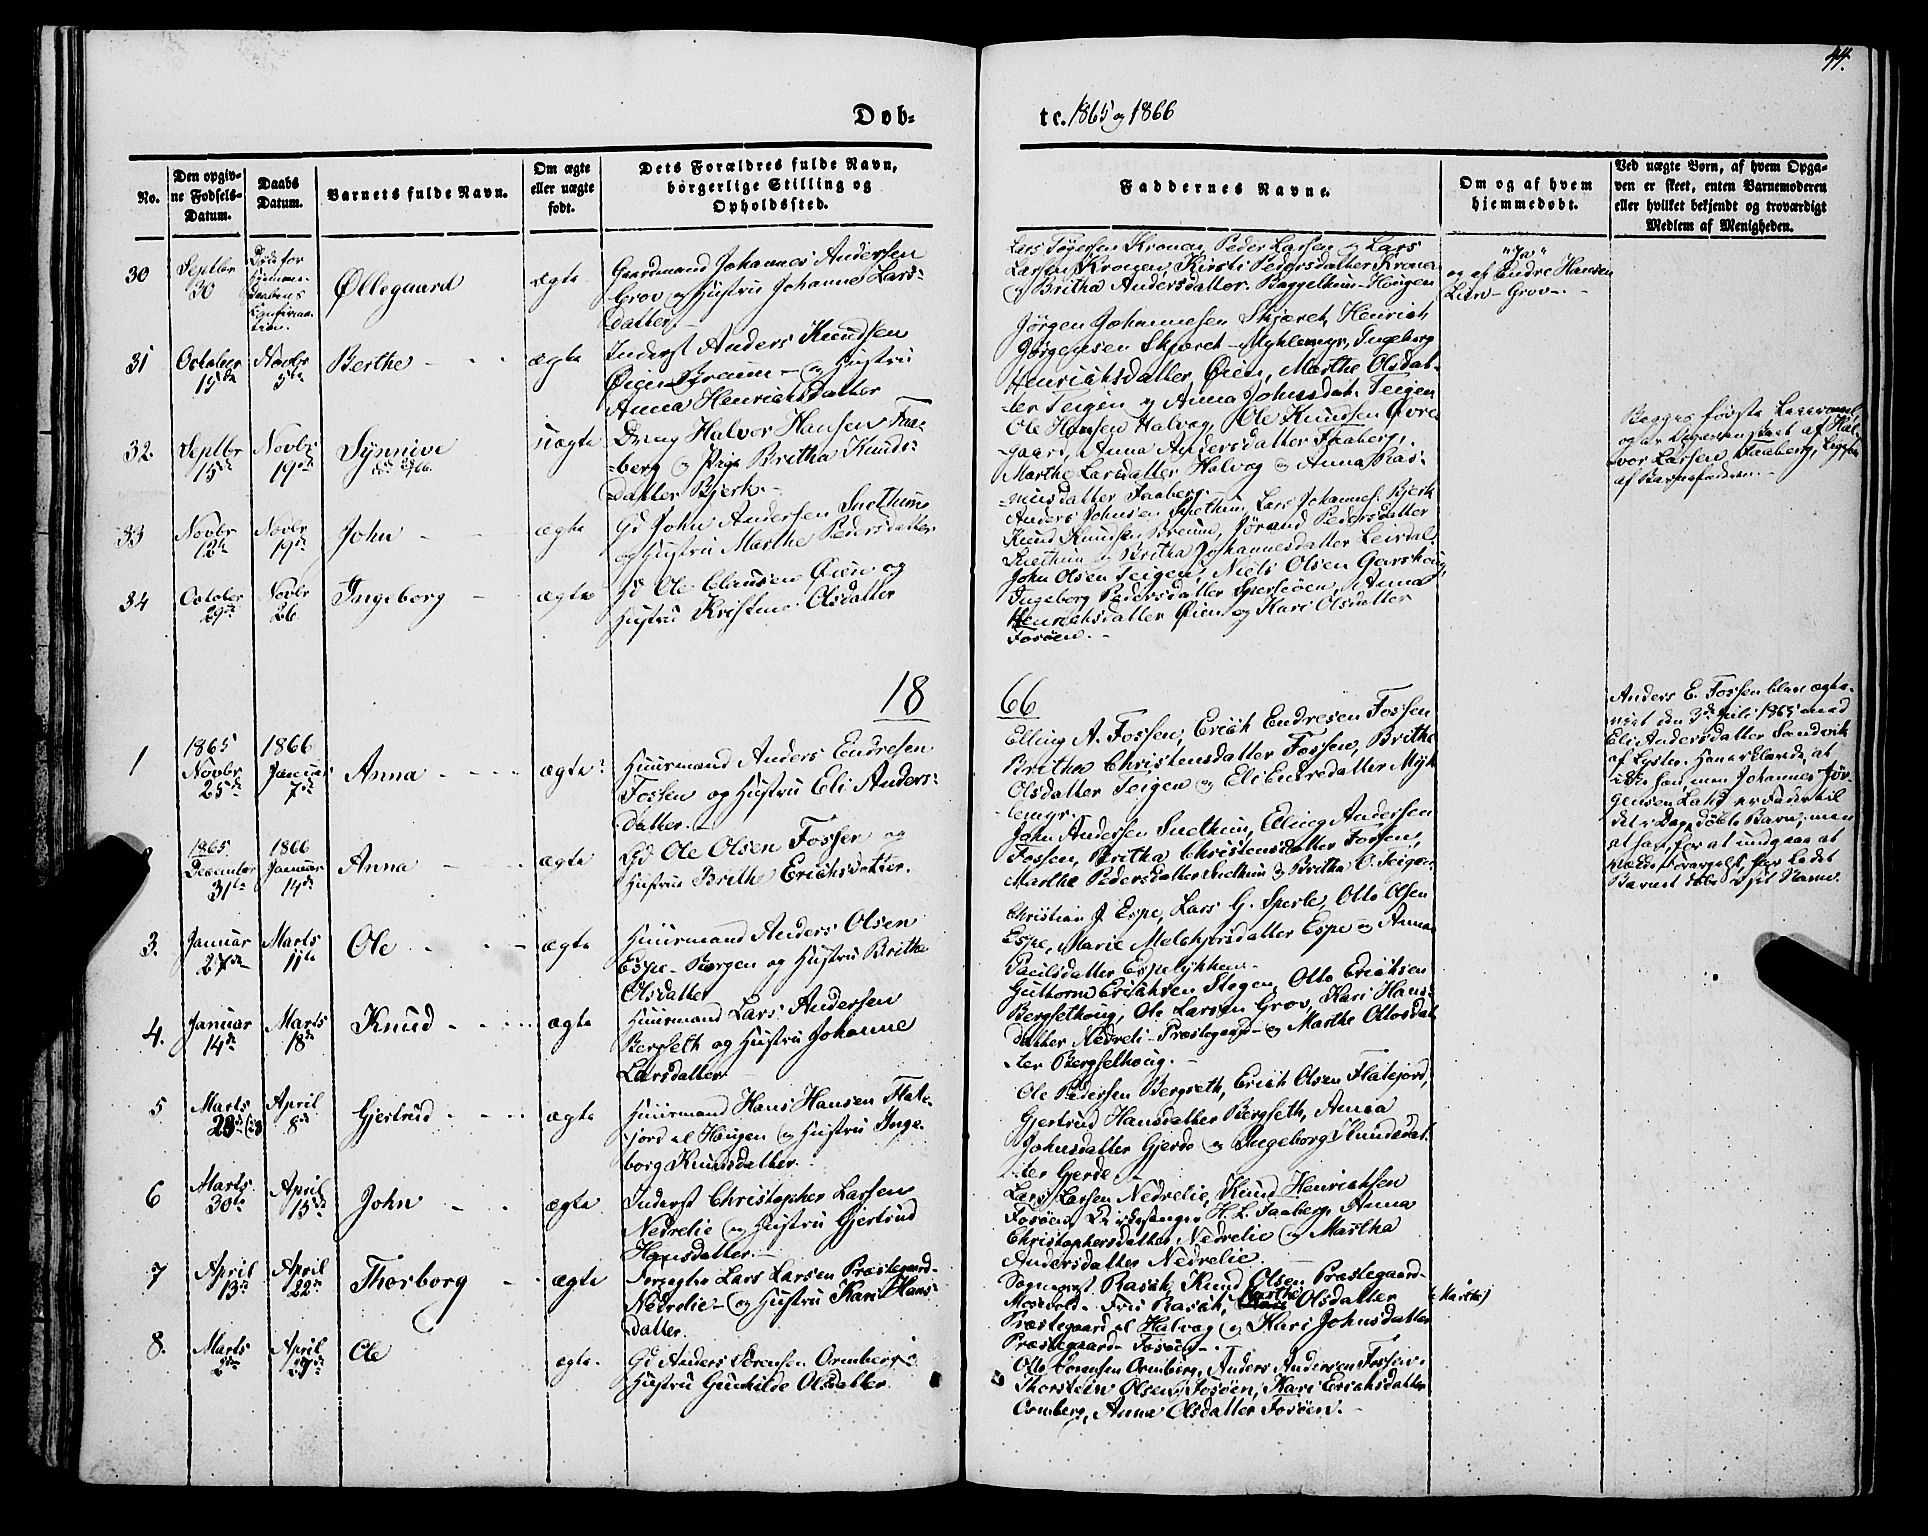 44.
Døb-
te. 1865 og 1866
No.
Den opgiv-
ne Fødsels-
Datum.
Daabs
Datum.
Barnets fulde Navn.
Om ægte
eller uægte
født.
Dets Forældres fulde Navn,
borgerlige Stilling og
Opholdssted.
Faddernes Navne.
Om og af hvem
hjemmedøbt.
Ved uægte Børn, af hvem Opga-
ven er skeet, enten Barnemoderen
eller hvilket bekjendt og troværdigt
Medlem af Menigheden.
30
Septbr
30
Øllegaard
ægte
Gaardmand Johannes Andersen
Grov og Hustru Johanne Lars-
datter.
Larsen Kronen, Kirsti Pedersdatter Kronen
og Britha Andersdatter Baggethun-Hougen
"Ja"
og af Endre Hansen
Lien-Grov-.
31
October
15de
Novbr
5te
Berthe
ægte
Inderst Anders Knudsen
Øien Breum - og Hustru
Anna Henrichsdatter
Jørgen Johannesen Skjæret, Henrich
Jørgensen Skjæret-Myklemyr, Ingeborg
Henrichsdatter Øien, Marthe Olsdat-
ter Teigen og Anna Johnsdat. Teigen
32.
Septbr
15de
Novbr
19de
Synnive
uægte
Dreng Halvor Hansen Faa-
berg og Pige Britha Knuds-
datter Bjerk.-
Ole Hansen Halvag, Ole Knudsen Øvre-
gaard, Anna Andersdatter Faaberg,
Marthe Larsdatter Halvag og Anna Ras-
musdatter Faaberg.
Begges første Leiermaal,
og er Opgaven skeet af Hal-
vor Larsen Faaberg,
af Barnefaderen.-
33
Novbr
12te
Novbr
19de
John
ægte
Gd John Andersen Snethun
og Hustru Marthe Pedersdatter
Anders Johnsen Snethun, Lars Johannes. Bjerk
Knud Knudsen Breum, Jørand Pedersdatter
Snethun og Britha Johannesdatter Leirdal.
34
October
29de
Novbr
26
Ingeborg
ægte
Gd Ole Clausen Øien og
Hustru Kristine Olsdatter
John Olsen Teigen, Niels Olsen Garshoug,
Ingeborg Pedersdatter Sperleøen, Anna
Henrichsdatter Øien og Kari Olsdatter
Fosøen.-
18
66
1
1865
Novbr
25de
1866
Januar
7de
Anna
ægte
Huusmand Anders Endresen
Fossen og Hustru Eli Anders-
datter.-
Elling A. Fossen, Erich Endresen Fossen
Britha Christensdatter Fossen, Britha
Olsdatter Teigen og Eli Endresdatter Myk-
lemyr.
Anders E. Fossen blev ægte-
viet den 3de Juli 1865 med
Eli Andersdatter Sandvik
af Lyster. Han erklærede, at
ikke han, men Johannes Jør-
gensen Lahd er Fader til
det i Dag døbte Barn, men
at han, for at undgaae at
vække Forargelse, har ladet
Barnet døbe i sit Navn.
1865
December
31te
1866
Januar
14de
Anna
ægte
Gd Ole Olsen Fossen og
Hustru Brithe Erichsdatter.
John Andersen Snethun, Elling Andersen
Fossen, Britha Christensdatter Fossen,
Marthe Pedersdatter Snethun og Britha O. Teigen.
3.
Januar
27de
Marts
11te
Ole
ægte
Huusmand Anders Olsen
Espe-Borgen og Hustru Brithe
Olsdatter
Christian J. Espe, Lars G. Sperle, Otto Olsen
Espe, Marie Melchiorsdatter Espe og Anna
Paulsdatter Espelykken.-
4.
Januar
14de
Marts
18de
Knud
ægte
Huusmand Lars Andersen
Bergseth og Hustru Johanne
Larsdatter
Guttorm Erichsen Stegen, Otto Erichsen
Bergsethoug, Ole Larsen Grov, Kari Hans-
datter Nedreli-Prestegaard- og Marthe Ottosdat-
ter Bergsethoug.-
5
Marts
April
8de
Gjertrud
ægte
Huusmand Hans Hansen Flate-
fjord el Hougen og Hustru Inge-
borg Knudsdatter.
Ole Pedersen Bergseth, Erich Olsen Flatefjord,
Gjertrud Hansdatter Bergseth, Anna
Johnsdatter Gjerde og Ingeborg Knudsdat-
ter Gjerde.-
6
Marts
30te
April
15de
John
ægte
Inderst Christopher Larsen
Nedrelie og Hustru Gjertrud
Hansdatter.-
Lars Larsen Nedrelie, Knud Henrichsen
Fosøen, Kirkesanger H. L. Faaberg, Anna
Christophersdatter Nedrelie og Martha
Andersdatter Nedrelie
7
April
13de
April
22de
Thorborg
ægte
Forpagter Lars Larsen Præstegaard-
Nedrelie- og Hustru Kari Hans-
datter.
Sognepræst Rasch, Knud Olsen Præstegaard-
Mosevold- Fru Rasch, Marthe Olsdatter
Præstegaard el Halvag og Kari Johnsdatter
Præstegaard-Fosøen-.
(Marthe)
8.
Marts
April
Ole
ægte.
Gd Anders Sørensen Ormberg og
Hustru Gunhilde Olsdatter
Otto Sørensen Ormberg, Anders Andersen Fossen,
Thorstein Olsen Fosøen, Kari Erichsdatter
Ormberg, Anna Olsdatter Fosøen.-